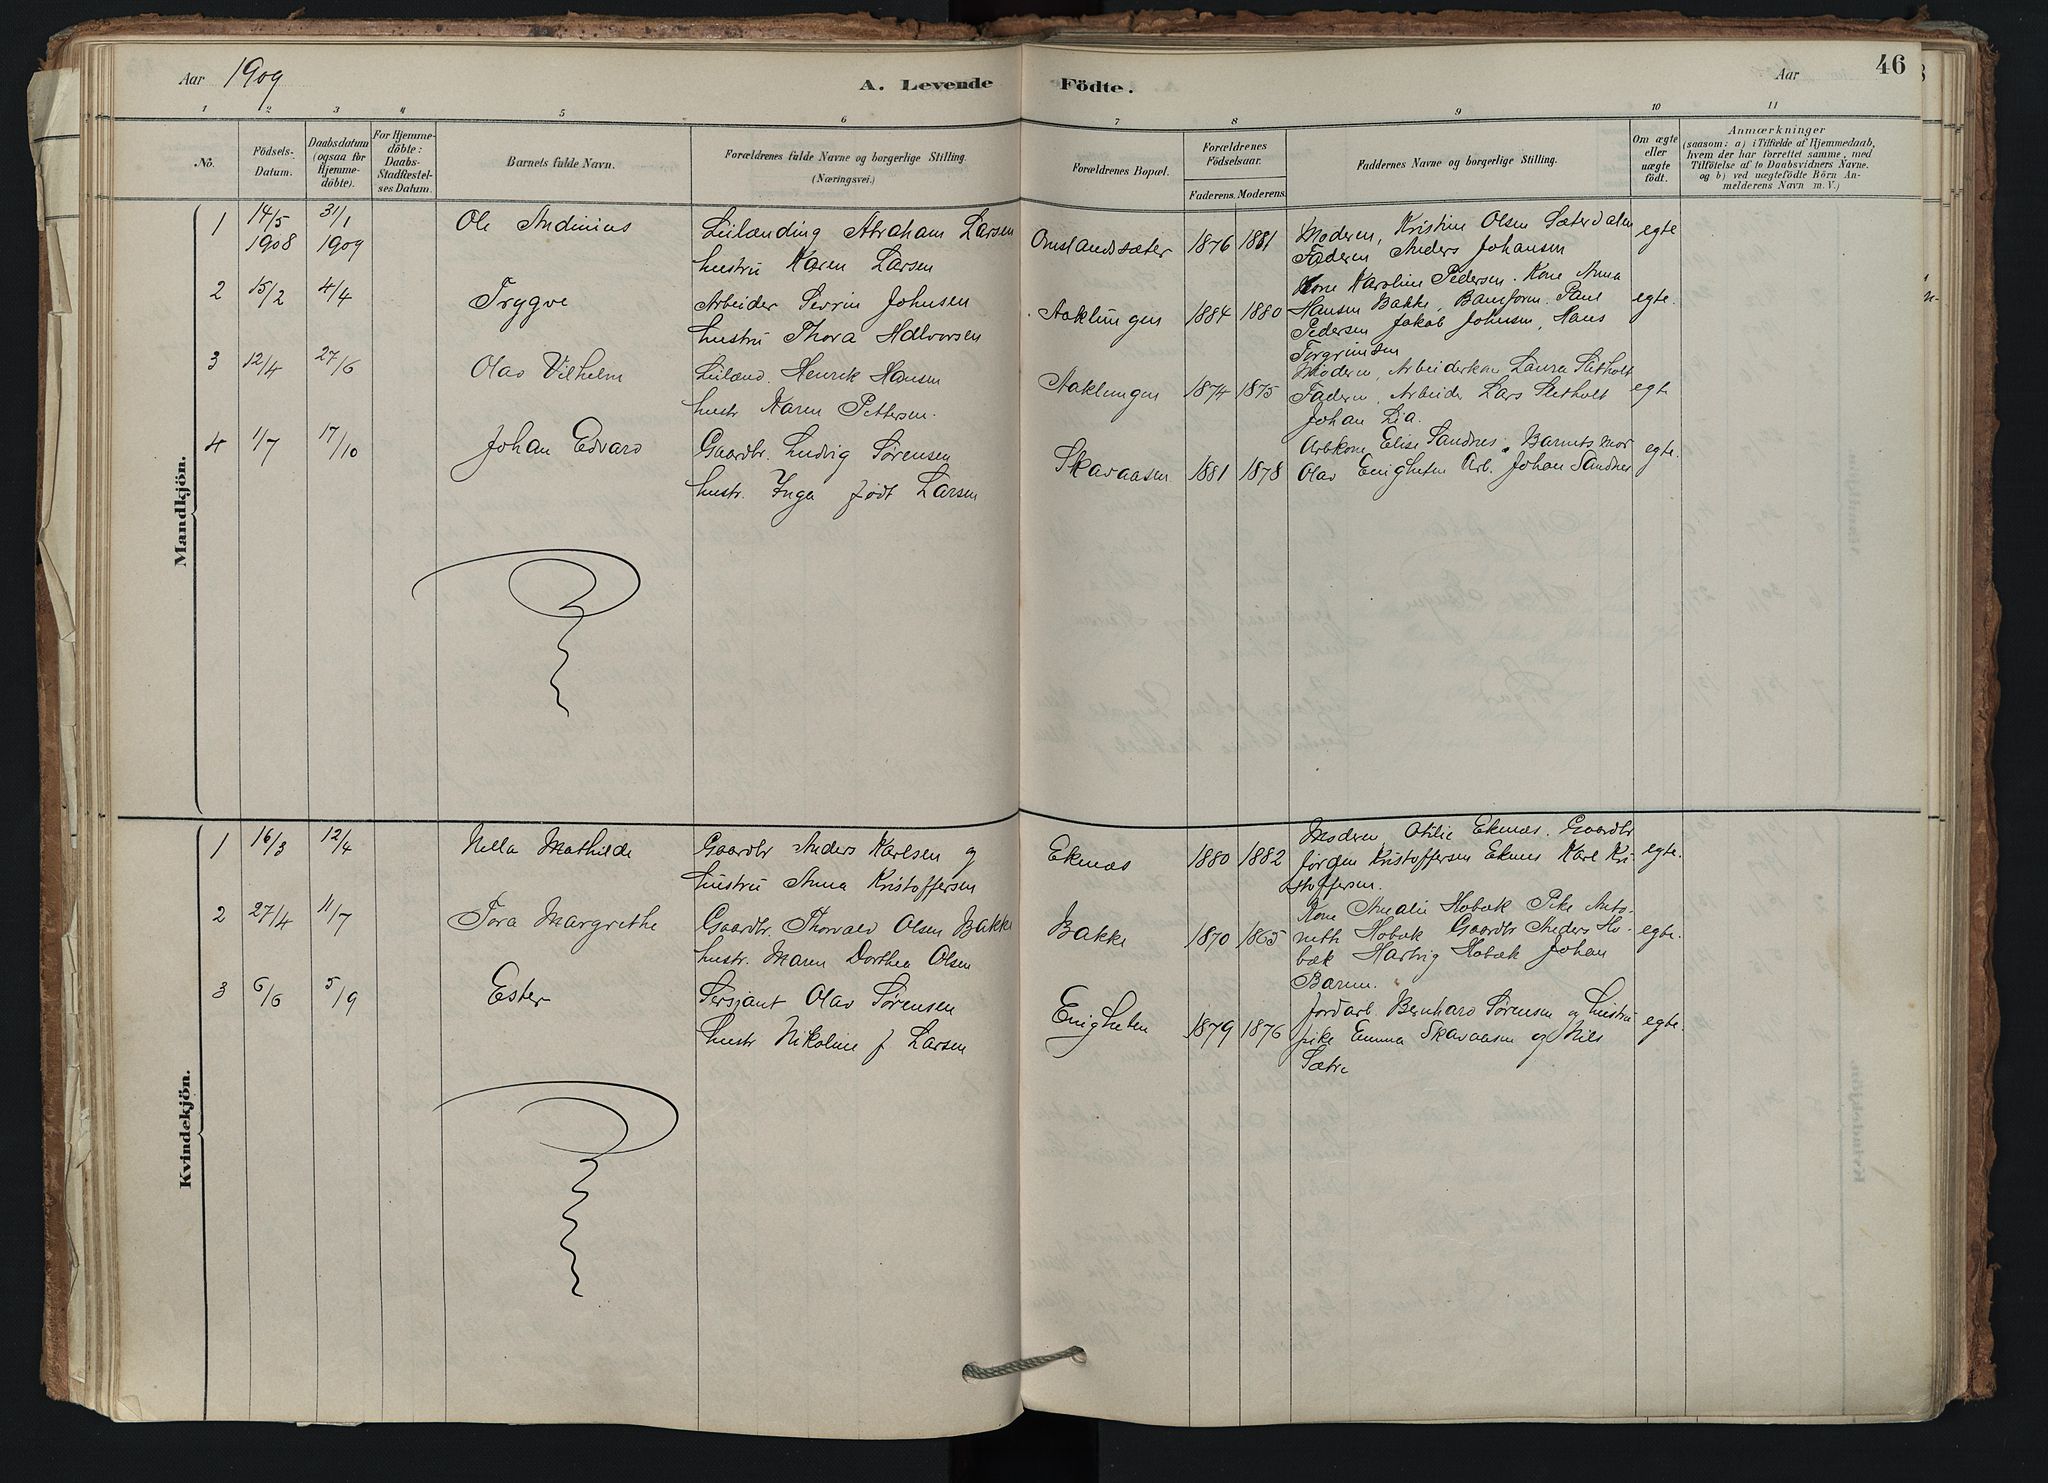 Aar 1909
A. Levende Födte.
Aar 46
1 2 3 4 5 6 7 8 9 10 11
No.
Födsels-
Datum.
Daabsdatum
(ogsaa for
Hjemme-
döbte).
For Hjemme-
döbte:
Daabs-
Stadfæstel-
ses Datum.
Barnets fulde Navn.
Forældrenes fulde Navne og borgerlige Stilling.
(Næringsvei.)
Forældrenes Bopæl.
Forældrenes
Födselsaar.
Faderens. Moderens.
Faddernes Navne og borgerlige Stilling.
Om ægte
eller
uægte
födt.
Anmærkninger
(saasom: a) i Tilfælde af Hjemmedaab,
hvem der har forrettet samme, med
Tilföielse af to Daabsvidners Navne.
og b) ved uægtefödte Börn An-
melderens Navn m. V.)
Mandkjön.
1 14/5 1908 31/1 1909 Ole Andinius
Leilænding Abraham Larsen
hustru Karen Larsen
Omslandssæter 1876 1881
Moderen, Kristine Olsen Sæterdalen
Faderen Anders Johansen
egte
2 15/2 4/4 Trygve
Arbeider Severin Johnsen
hustru Thora Halvorsen
Aaklungen 1884 1880
Kone Karoline Pedersen. Kone Anna
Hansen Bakke, Paul
Pedersen Jakob Johnsen, Hans
Torgrimsen
egte.
3 12/4 27/6 Olav Vilhelm
Leilænd. Henrik Hansen
hustr Karen Pettersen.
Aaklungen 1874 1875
Moderen, Arbeiderkone Laura Sletholt
Faderen, Arbeider Lars Sletholt
Johan Lia.
egte
4 1/7 17/10 Johan Edvard
Gaardbr. Ludvig Sørensen
hustr. Inga født Larsen
Skavaasen 1881 1878
Arbkone Elise Sandnes, Barnets mor
Olav Enigheten Arb. Johan Sandnes
egte.
Kvindekjön.
1 16/3 12/4 Nella Mathilde
Gaardbr Anders Karlsen og
hustru Anna Kristoffersen
Eknæs 1880 1882
Moderen, Otilie Eknæs. Gaardbr
Jørgen Kristoffersen Eknes Karl Kri-
stoffersen.
egte.
2 27/4 11/7 Tora Margrethe
Gaardbr. Thorvald Olsen Bakke
hustr. Maren Dorthea Olsen
Bakke 1870 1865
Kone Amalie Hobæk Pike Anto-
nette Hobæk Gaardbr Anders Ho-
bæk Hartvig Hobæk Johan
egte.
3 6/6 5/9 Ester
Sersjant Olav Sørensen
hustr Nikoline f Larsen
Enigheten 1879 1876
Jordarb. Bernhard Sørensen og hustru
pike Emma Skavaasen og Nils
Sætre
egte.